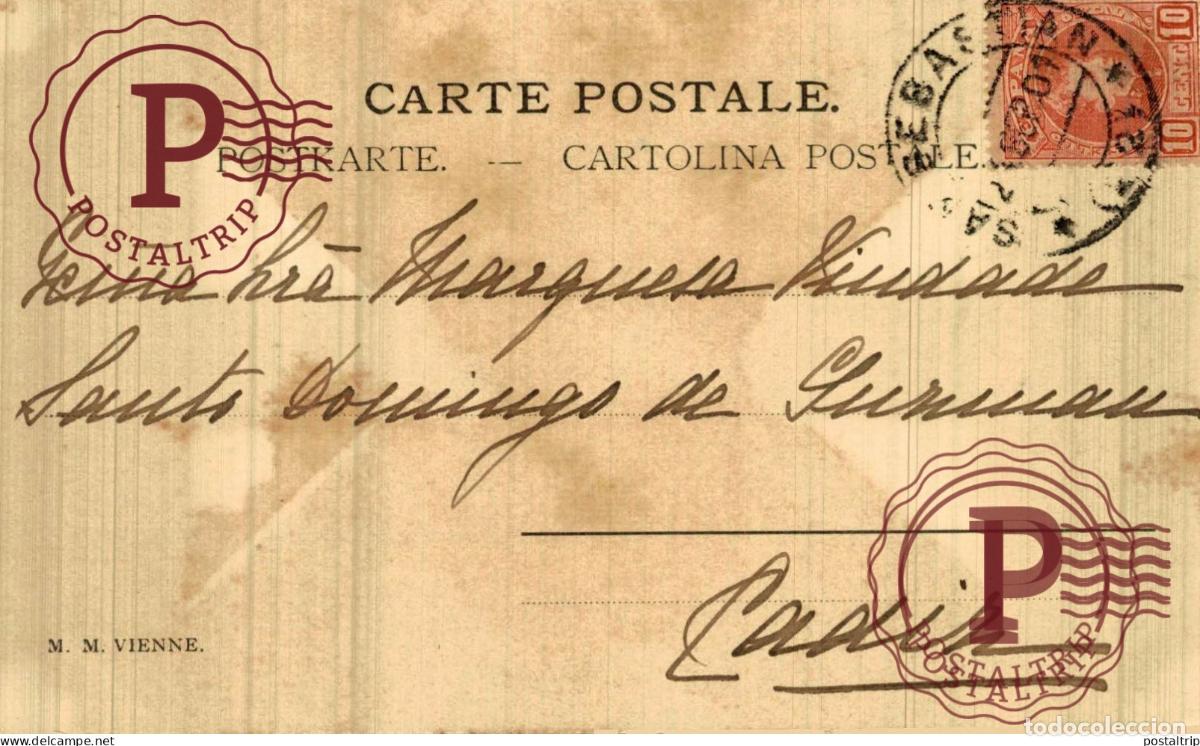 CARTE POSTALE.
POSTKARTE. — CARTOLINA POSTALE.
10 CENT 10
SEBASTIAN
POSTALTRIP
Exma Srā Marquesa Viuda de
Santo Domingo de Guzman
Cadiz
M. M. VIENNE.
POSTALTRIP
todocoleccion
www.delcampe.net
postaltrip